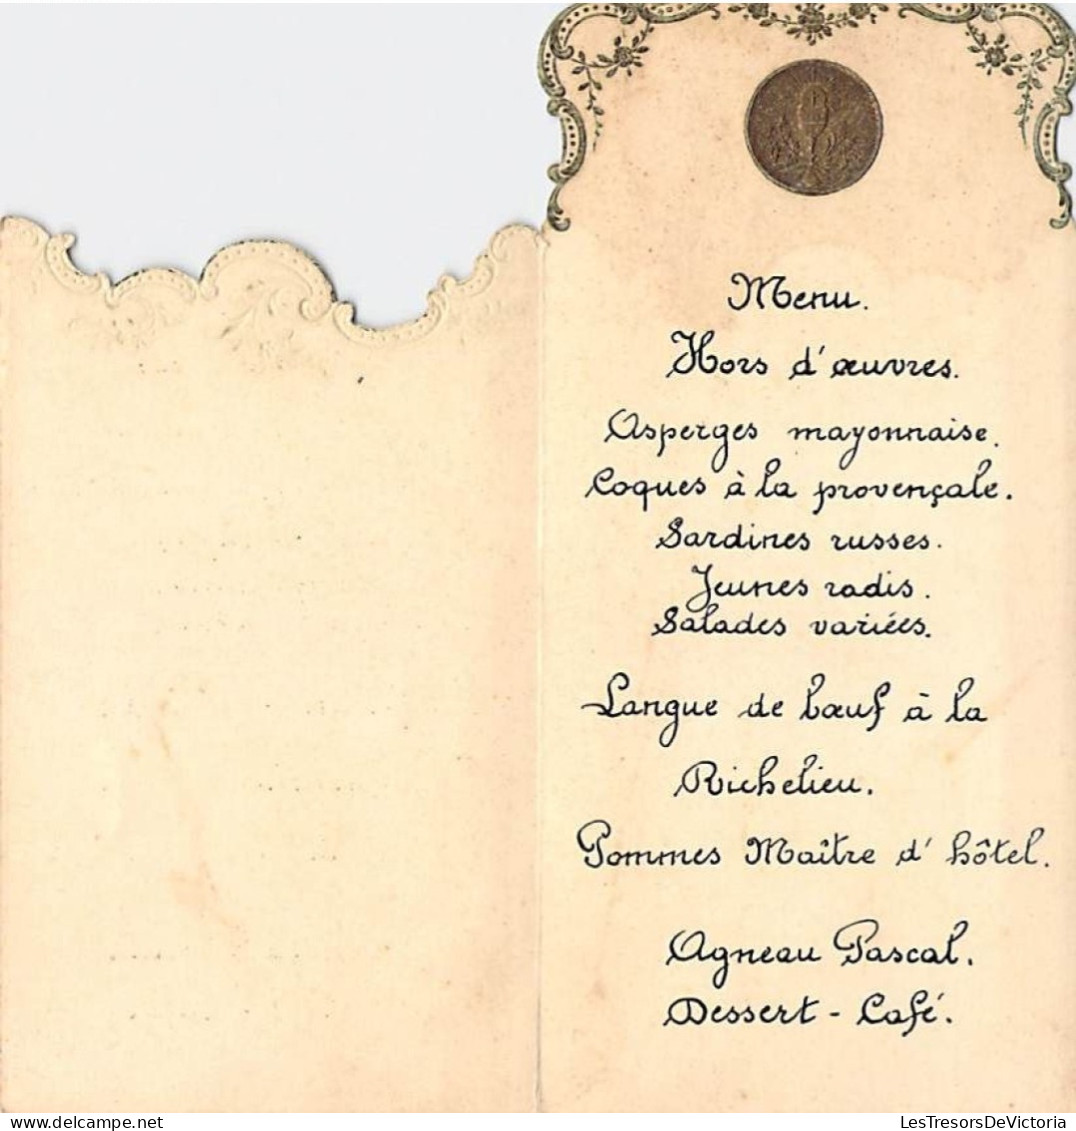 Menu.
Hors d'œuvres.
Asperges mayonnaise.
Coques à la provençale.
Sardines russes.
Jeunes radis.
Salades variées.
Langue de bœuf à la
Richelieu.
Pommes Maître d'hôtel.
Agneau Pascal.
Dessert - Café.
www.delcampe.net
LesTresorsDeVictoria